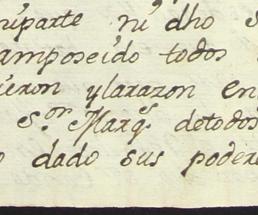 niparte ni dho S
amposeido todos
ieron ylarazon en
S.or Marq.s detodos
o dado sus podere